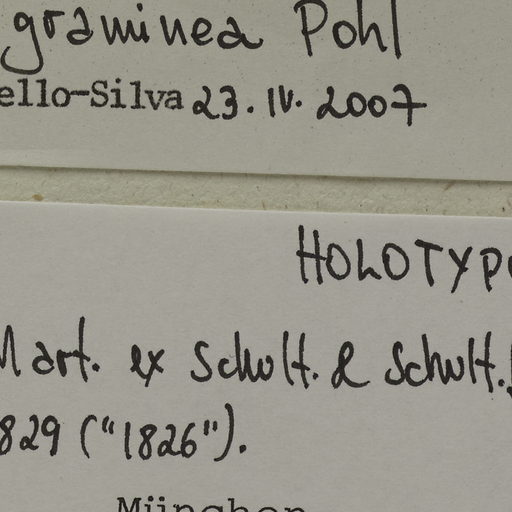 graminea Pohl
ello-Silva 23.IV.2007
HOLOTYP
Mart. ex Schult. & Schult.f
829 ("1826").
München